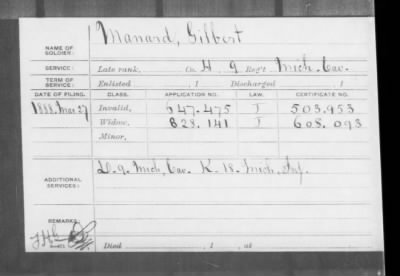 Manard, Gilbert
NAME OF SOLDIER:
SERVICE: Late rank, Co. H, 9 Reg't Mich. Cav.
TERM OF SERVICE: Enlisted , 1 Discharged , 1
DATE OF FILING. CLASS. APPLICATION NO. LAW. CERTIFICATE NO.
1888. Mar. 27 Invalid, 647.475 I 503.953
Widow, 828.141 I 608.093
Minor,
ADDITIONAL SERVICES: D. 9. Mich. Cav. K. 18. Mich. Inf.
REMARKS:
Died , 1 , at